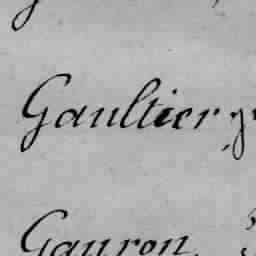 Gaultier
Gauron